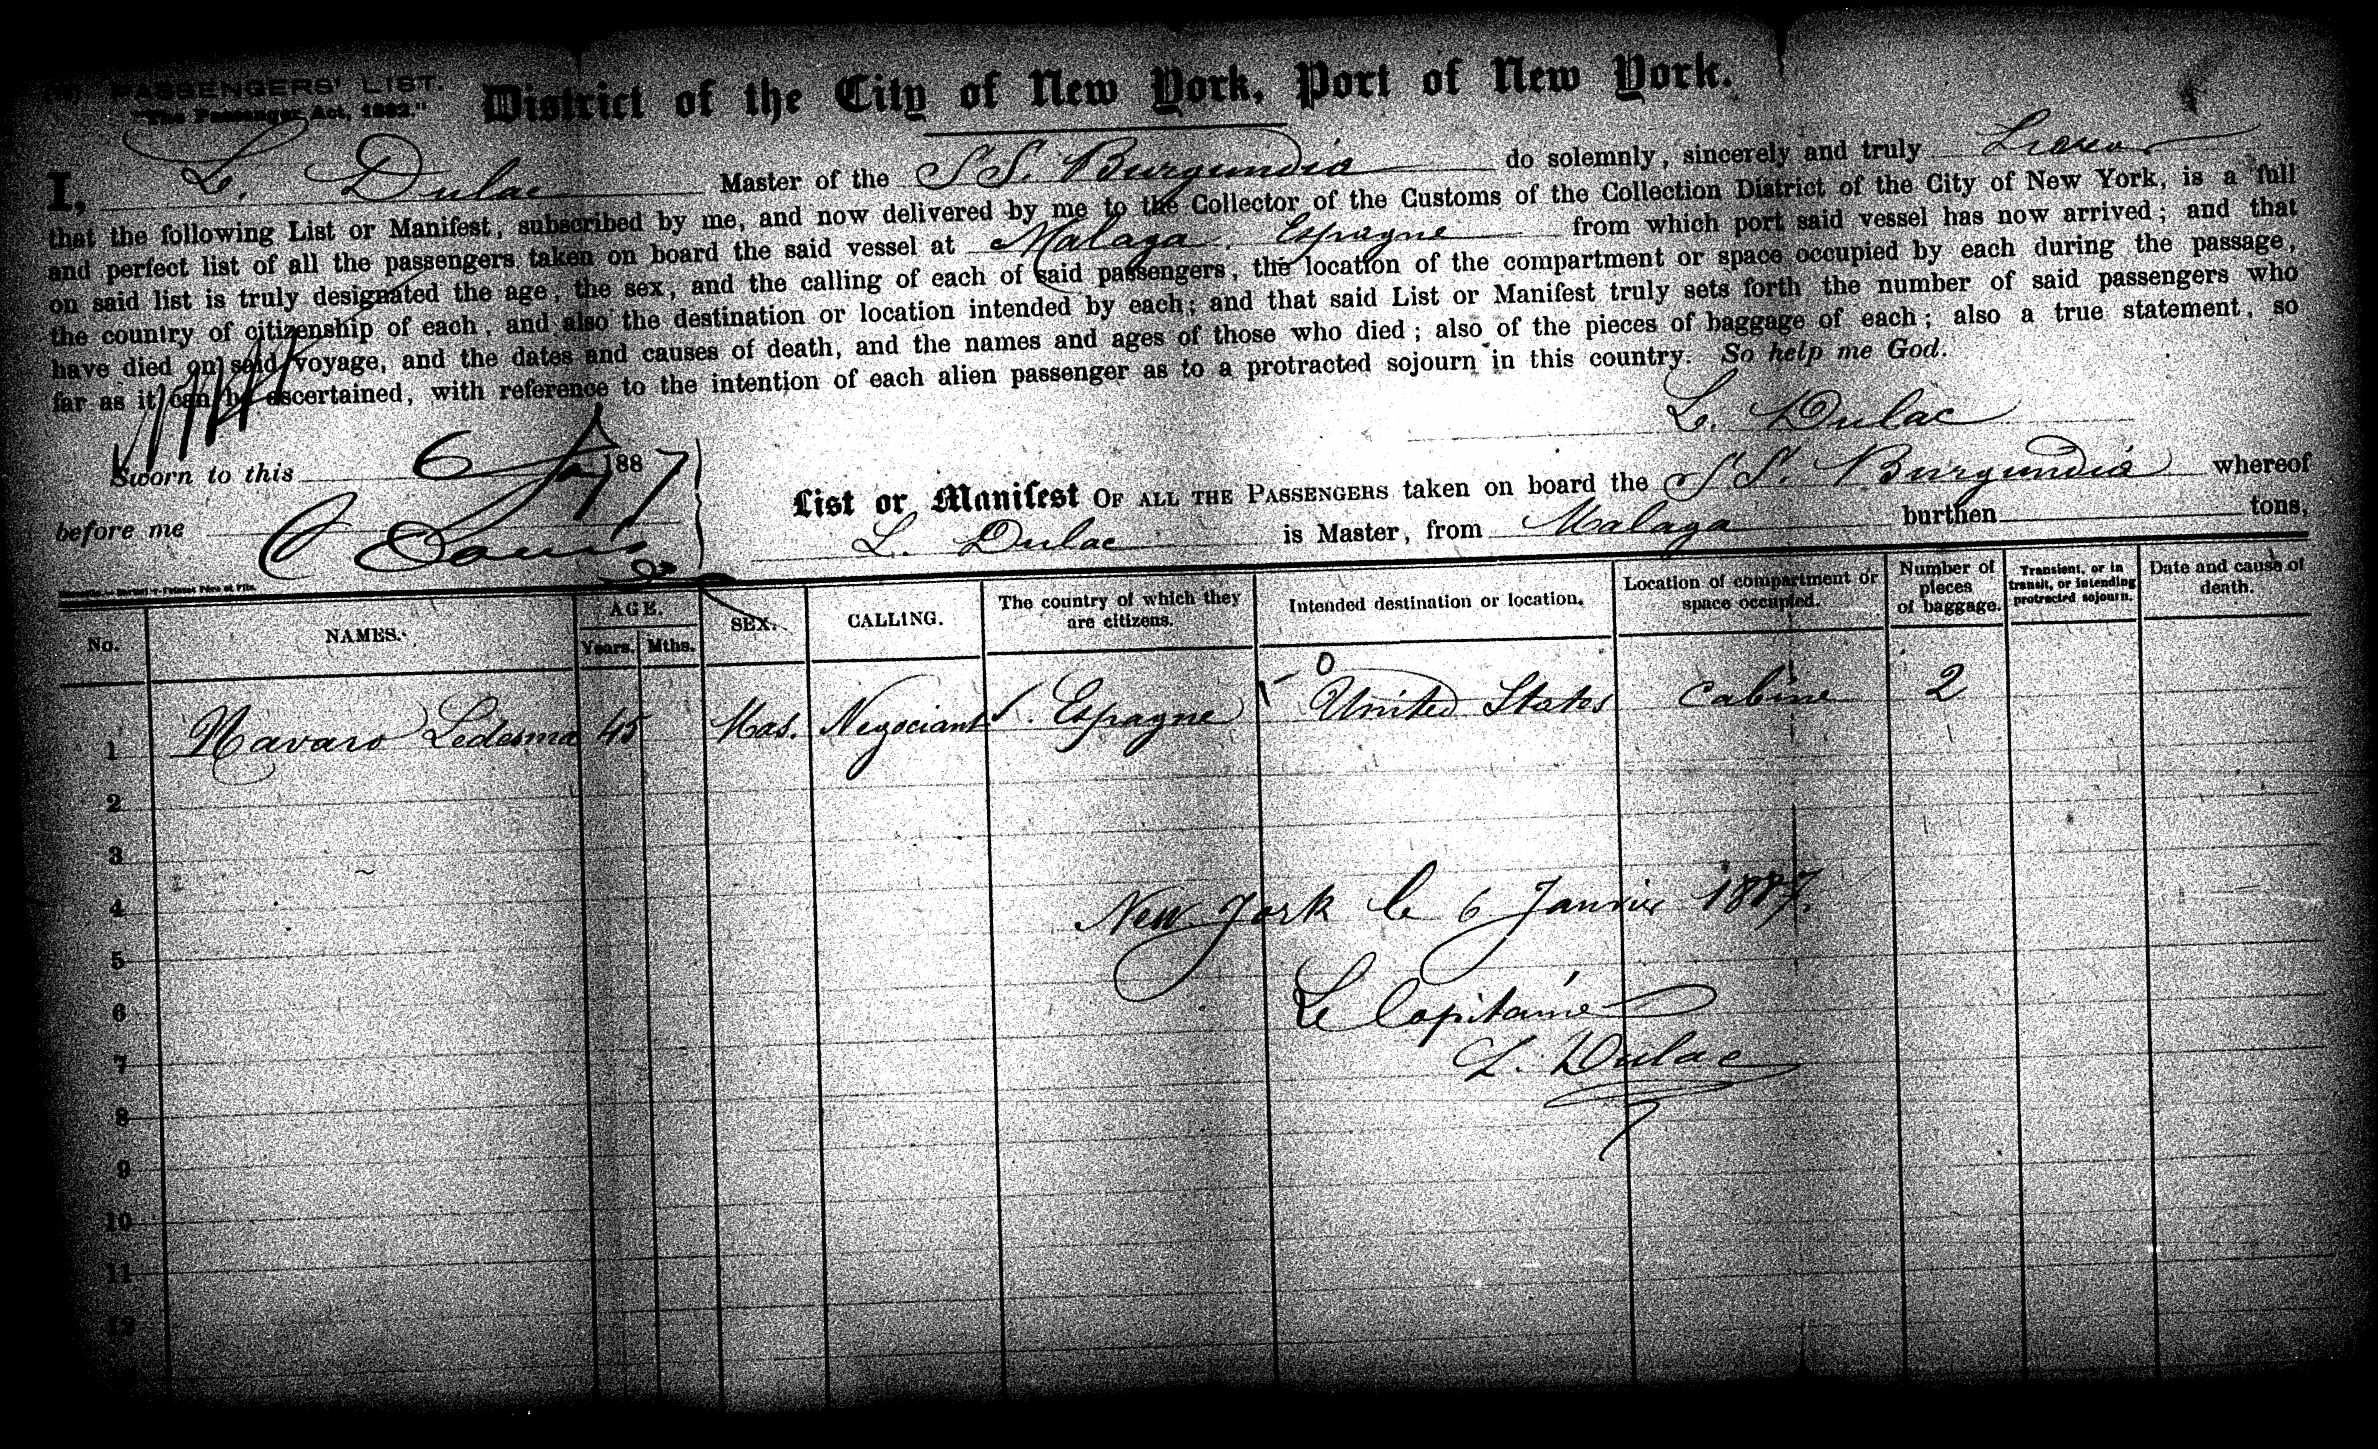 PASSENGERS' LIST.
"The Passenger Act, 1882."
District of the City of New York, Port of New York.
I, L. Dulac Master of the S S. Burgundia do solemnly, sincerely and truly
that the following List or Manifest, subscribed by me, and now delivered by me to the Collector of the Customs of the Collection District of the City of New York, is a full
and perfect list of all the passengers taken on board the said vessel at Malaga, Espagne from which port said vessel has now arrived; and that
on said list is truly designated the age, the sex, and the calling of each of said passengers, the location of the compartment or space occupied by each during the passage,
the country of citizenship of each, and also the destination or location intended by each; and that said List or Manifest truly sets forth the number of said passengers who
have died on said voyage, and the dates and causes of death, and the names and ages of those who died; also of the pieces of baggage of each; also a true statement, so
far as it can be ascertained, with reference to the intention of each alien passenger as to a protracted sojourn in this country. So help me God.
L. Dulac
Sworn to this 6 188 7
before me
List or Manifest OF ALL THE PASSENGERS taken on board the S S. Burgundia whereof
L. Dulac is Master, from Malaga burthen tons,
No. NAMES. AGE. Years. Mths. SEX. CALLING. The country of which they are citizens. Intended destination or location. Location of compartment or space occupied. Number of pieces of baggage. Transient, or in transit, or intending protracted sojourn. Date and cause of death.
1 Navaro Ledesma 45 Mas. Negociant Espagne United States Cabine 2
2
3
4
New York le 6 Janvier 1887.
5
6
Le Capitaine
7
L. Dulac
8
9
10
11
12